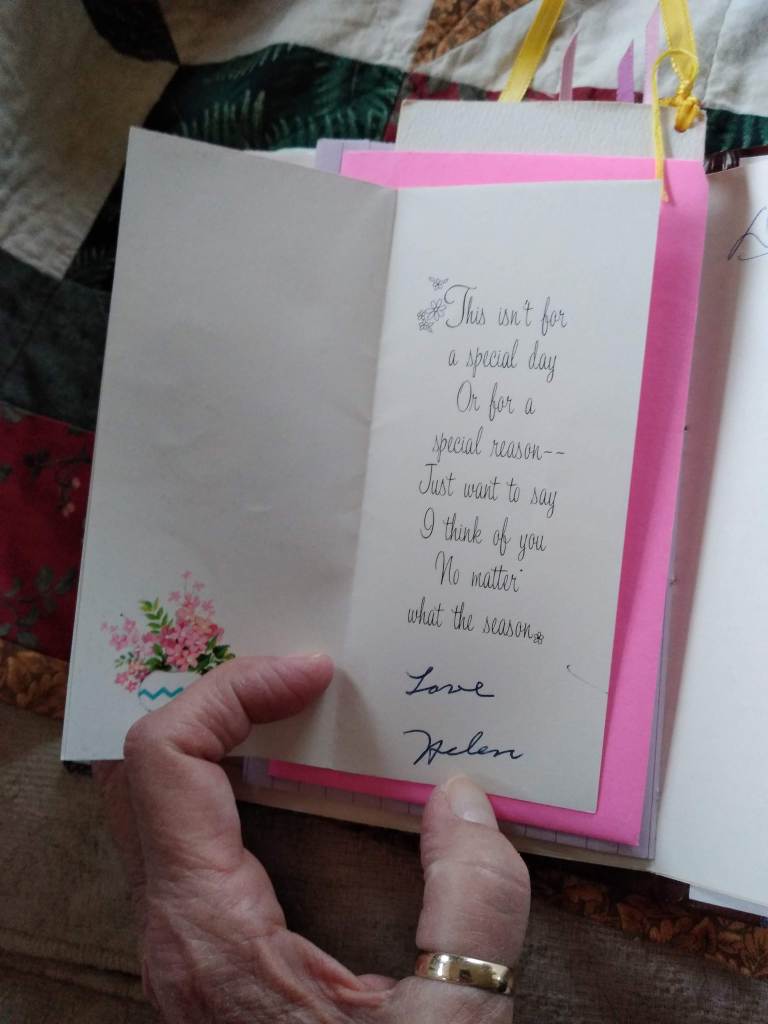 This isn't for
a special day
Or for a
special reason--
Just want to say
I think of you
No matter
what the season
Love
Helen